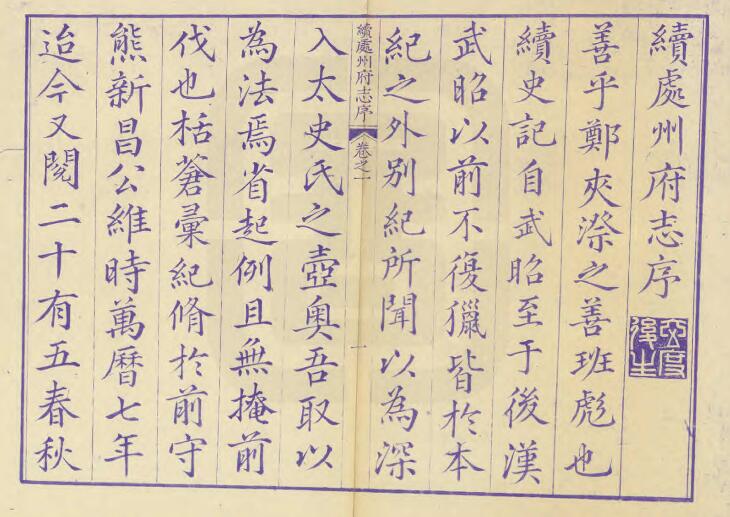 續處州府志序
善乎鄭夾漈之善班彪也
續史記自武昭至于後漢
武昭以前不復獵皆於本
紀之外別紀所聞以為深
續處州府志序 卷之一 一
入太史氏之壺奧吾取以
為法焉省起例且無掩前
伐也栝蒼彙紀脩於前守
熊新昌公維時萬曆七年
迨今又閱二十有五春秋